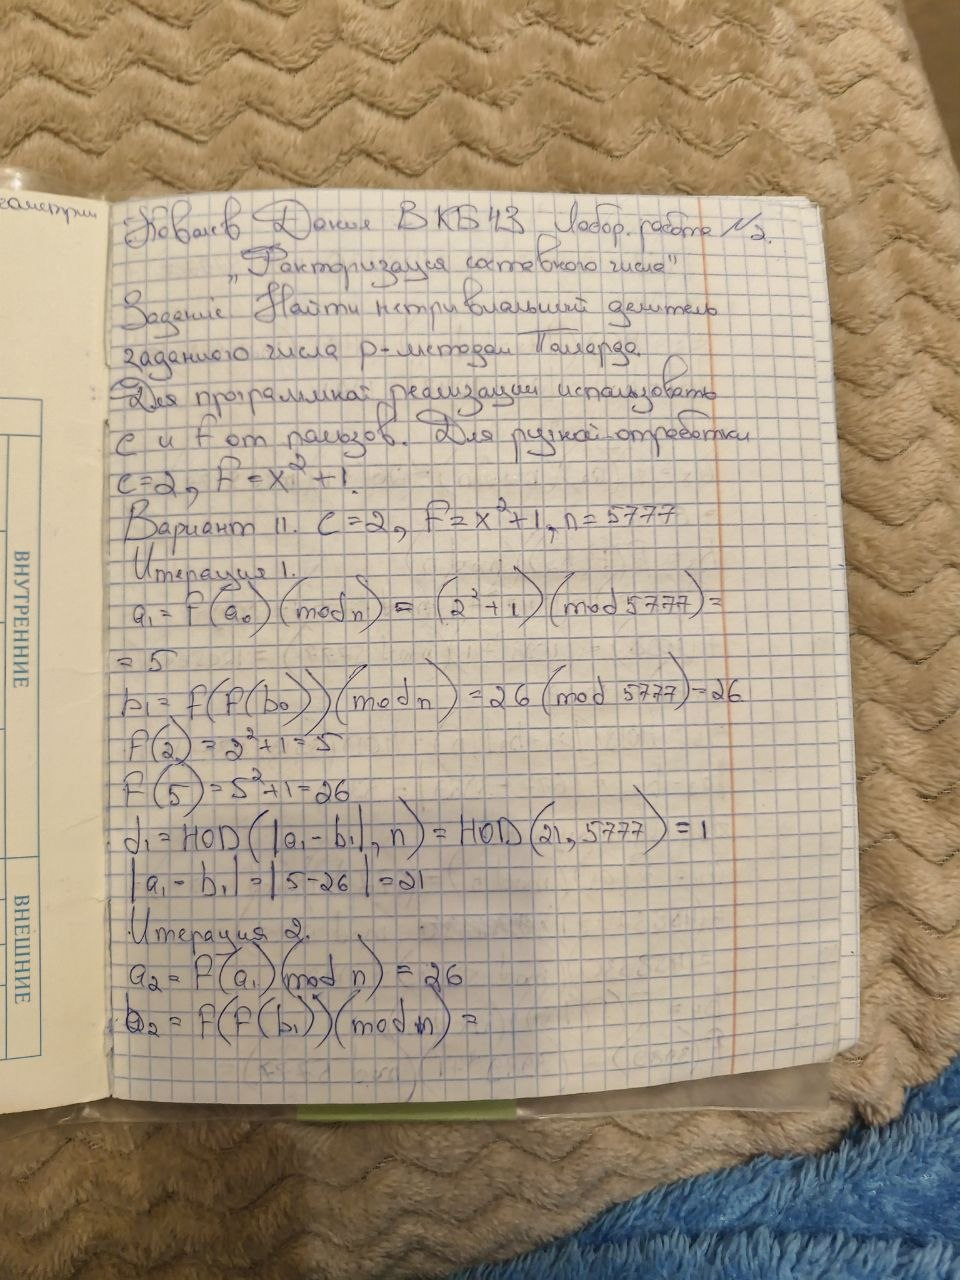 Ковалев Дания ВКБ43 Лабор. работа №2.
„Факторизация составного числа"
Задание: Найти нетривиальный делитель
заданного числа p-методом Полларда.
Для программной реализации использовать
c и f от пользов. Для ручной отработки
c=2, f=x²+1.
Вариант 11. c=2, f=x²+1, n=5777
Итерация 1.
a₁=f(a₀)(mod n) = (2²+1)(mod 5777)=
= 5
b₁=f(f(b₀))(mod n)=26(mod 5777)=26
f(2)=2²+1=5
f(5)=5²+1=26
d₁=НОД(|a₁-b₁|, n)=НОД(21, 5777)=1
|a₁-b₁|=|5-26|=21
Итерация 2.
a₂=f(a₁)(mod n)=26
b₂=f(f(b₁))(mod n)=
ВНУТРЕННИЕ
ВНЕШНИЕ